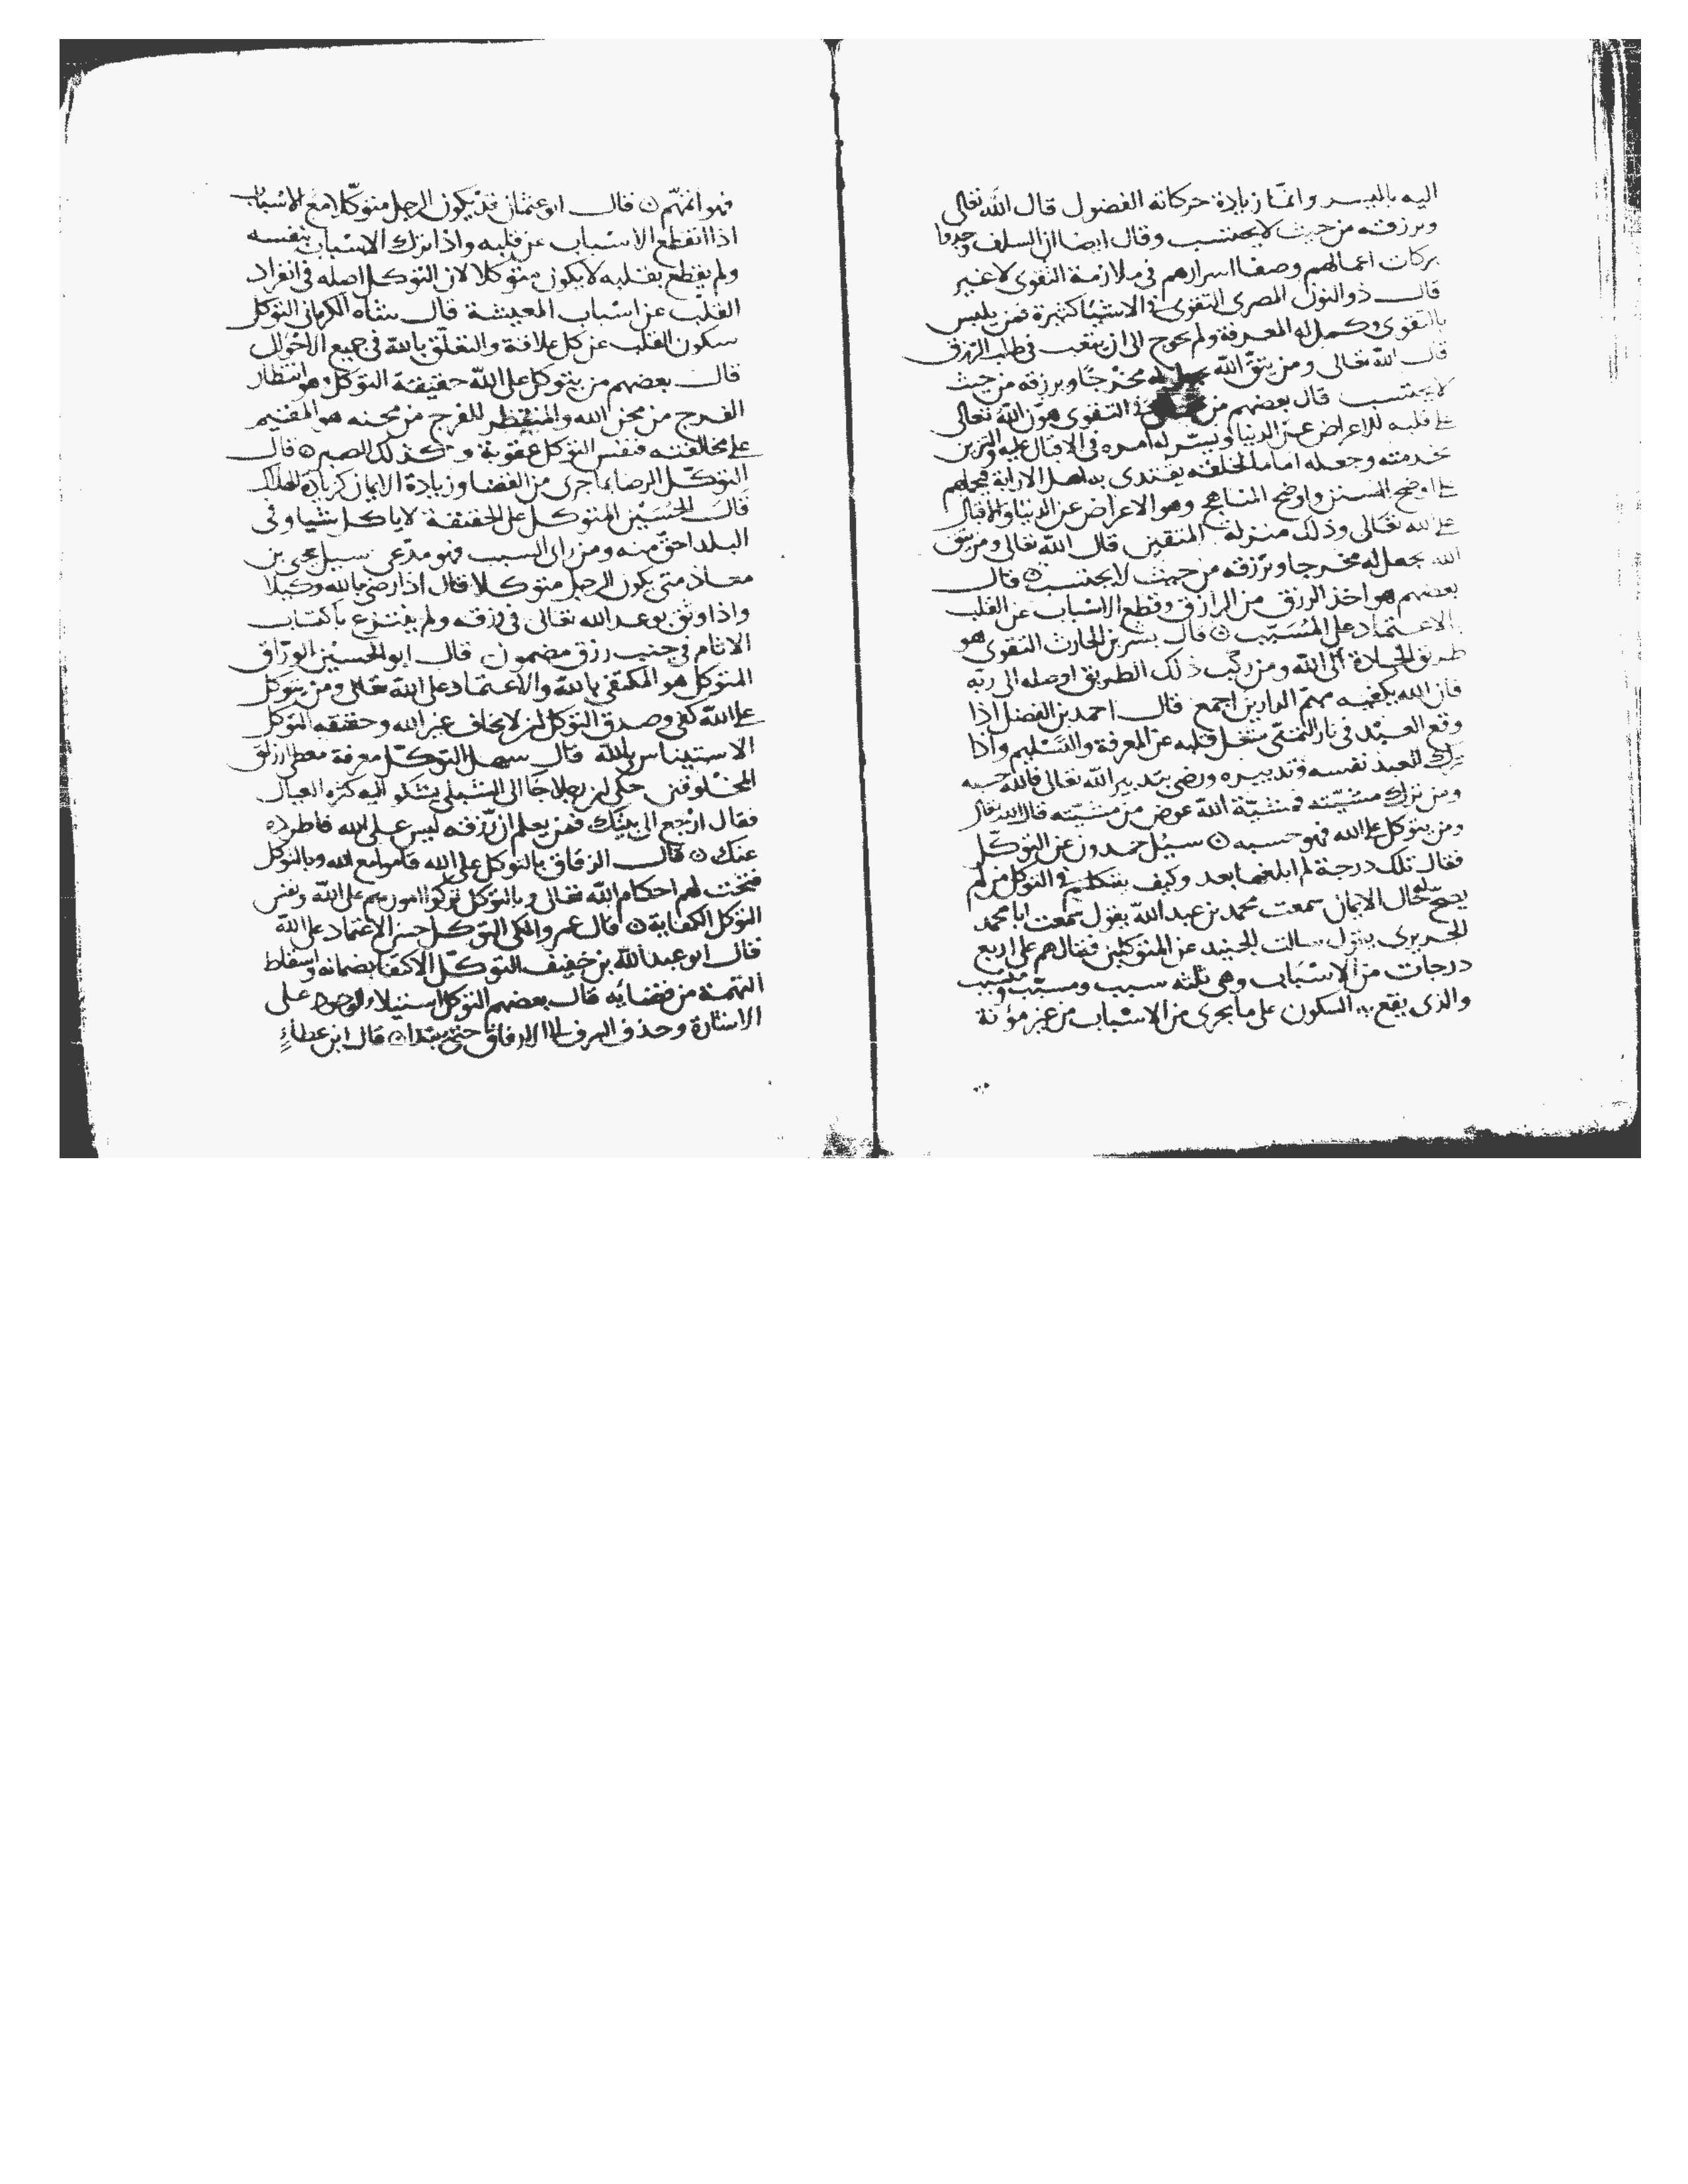 اليه بالبسر وانما زيادة حركاته الفضول قال الله تعالى
ويرزقه من حيث لا يحتسب وقال ايضا ان السلف وجدوا
بركات اعمالهم وصفا اسرارهم في ملازمة التقوى لا غير
قال ذو النون المصرى التقوى في الاشيا كثيرة فمن يلبس
بالتقوى وكمل له المعرفة ولم يحوج الى ان يتعب في طلب الرزق
قال الله تعالى ومن يتق الله يجعل له مخرجا ويرزقه من حيث
لا يحتسب قال بعضهم من التقوى هون الله تعالى
على قلبه للاعراض عن الدنيا ويسر له امره في الاقبال عليه والتزين
بخدمته وجعله اماما لخلقه يقتدى به اهل الارادة فيحملهم
على اوضح السنن واوضح المناهج وهو الاعراض عن الدنيا والاقبال
على الله تعالى وذلك منزلة المتقين قال الله تعالى ومن يتق
الله يجعل له مخرجا ويرزقه من حيث لا يحتسب ۞ قال
بعضهم هو اخذ الرزق من الرازق وقطع الاسباب عن القلب
الاعتماد على المسبب ۞ قال بشر بن الحارث التقوى هو
طريق الجادة الى الله ومن ركب ذلك الطريق اوصله الى ربه
فان الله يكفيه مهم الدارين اجمع قال احمد بن الفضل اذا
وقع العبد في نار التمنى شغل قلبه عن المعرفة والتسليم واذا
ترك العبد نفسه وتدبيره ورضى بتدبير الله تعالى فالله حسبه
ومن ترك مشيته فمشية الله عوض من مشيته قال الله تعالى
ومن يتوكل على الله فهو حسبه ۞ سيل حمدون عن التوكل
فقال تلك درجة لم ابلغها بعد وكيف يتكلم في التوكل من لم
يصح له حال الايمان سمعت محمد بن عبد الله يقول سمعت ابا محمد
الجريرى يقول سالت الجنيد عن المتوكلين فقال هم على اربع
درجات من الاسباب وهى ثلثه سبب ومسبب ومتسبب
والذى يقع به السكون على ما يجرى من الاسباب من غير مؤنة
فهو اتهم ۞ قال ابو عثمان قد يكون الرجل متوكلا مع الاسباب
اذا انقطع الاسباب عن قلبه واذا ترك الاسباب بنفسه
ولم يقطع بقلبه لا يكون متوكلا لان التوكل اصله في انفراد
القلب عن اسباب المعيشة قال شاه الكرمانى التوكل
سكون القلب عن كل علاقة والتعلق بالله في جميع الاحوال
قال بعضهم من يتوكل على الله حقيقة التوكل وهو انتظار
الفرج من محن الله والمنتظر للفرج من محنه هو المقيم
على مخالفته فنفس التوكل عقوبة وكذلك الصبر ۞ قال
التوكل الرضا بما جرى من القضا وزيادة الايمان كزيادة الهلال
قال الحسين المتوكل على الحقيقة لا ياكل شيا وفى
البلد احق منه ومن راى السبب فهو مدعى سيل يحيى بن
معاذ متى يكون الرجل متوكلا قال اذا رضى بالله وكيلا
واذا وثق بوعد الله تعالى في رزقه ولم ينتزع باكتساب
الانام في جنب رزق مضمون قال ابو الحسين الوراق
المتوكل هو المكتفى بالله والاعتماد على الله تعالى ومن يتوكل
على الله كفى وصدق التوكل ان لا يخاف غير الله وحقيقه التوكل
الاستيناس بالله قال سهل التوكل معرفة معطى ارزاق
المخلوقين حكى ان رجلا جا الى الشبلى يشكو اليه كثره العيال
فقال ارجع الى بيتك فمن يعلم ان رزقه ليس على الله فاطرده
عنك ۞ قال الزقاق بالتوكل على الله قاموا مع الله وبالتوكل
فتحت لهم احكام الله تعالى وبالتوكل تركوا امورهم على الله ونفس
التوكل الكفاية ۞ قال عمرو المكى التوكل حسن الاعتماد على الله
قال ابو عبد الله بن خفيف التوكل الاكتفا بضمانه واسقاط
التهمة من قضايه قال بعضهم التوكل استيلاء الوجود على
الاشارة وحذف السرف الى الارفاق حتى يبتدا ۞ قال ابن عطاءٍ